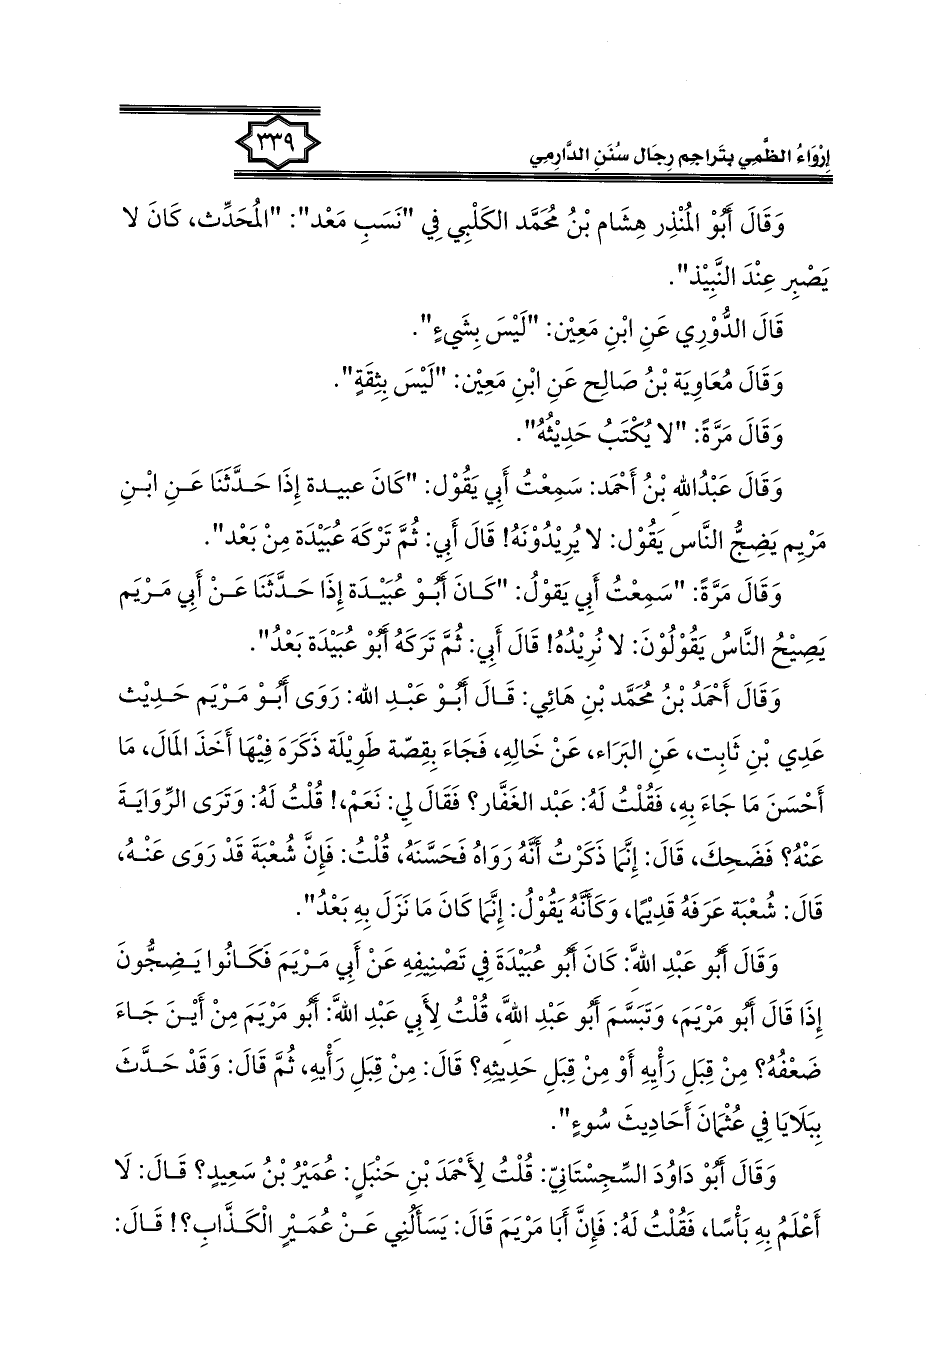 إِرْوَاءُ الظَّمِي بِتَرَاجِمِ رِجَالِ سُنَنِ الدَّارِمِي
٣٣٩
وَقَالَ أَبُوْ المُنْذِرِ هِشَام بْنُ مُحَمَّد الكَلْبِي فِي "نَسَبِ مَعْد": "المُحَدِّث، كَانَ لا
يَصْبِر عِنْدَ النَّبِيْذ".
قَالَ الدُّوْرِي عَنِ ابْنِ مَعِيْن: "لَيْسَ بِشَيءٍ".
وَقَالَ مُعَاوِيَة بْنُ صَالِح عَنِ ابْنِ مَعِيْن: "لَيْسَ بِثِقَةٍ".
وَقَالَ مَرَّةً: "لا يُكْتَبُ حَدِيْثُهُ".
وَقَالَ عَبْدُالله بْنُ أَحْمَد: سَمِعْتُ أَبِي يَقُوْل: "كَانَ عبيدة إِذَا حَدَّثَنَا عَنِ ابْنِ
مَرْيِم يَضِجُّ النَّاس يَقُوْل: لا يُرِيْدُوْنَهُ! قَالَ أَبِي: ثُمَّ تَرْكَهَ عُبَيْدَة مِنْ بَعْد".
وَقَالَ مَرَّةً: "سَمِعْتُ أَبِي يَقوْلُ: "كَانَ أَبُوْ عُبَيْدَة إِذَا حَدَّثَنَا عَنْ أَبِي مَرْيَم
يَصِيْحُ النَّاسُ يَقُوْلُوْنَ: لا نُرِيْدُهُ! قَالَ أَبِي: ثُمَّ تَرَكَهُ أَبُوْ عُبَيْدَة بَعْدُ".
وَقَالَ أَحْمَدُ بْنُ مُحَمَّد بْنِ هَانِي: قَالَ أَبُوْ عَبْدِ الله: رَوَى أَبُوْ مَرْيَم حَدِيْث
عَدِي بْنِ ثَابِت، عَنِ البَرَاء، عَنْ خَالِهِ، فَجَاءَ بِقِصّة طَوِيْلَة ذَكَرَهَ فِيْهَا أَخَذَ المَال، مَا
أَحْسَنَ مَا جَاءَ بِهِ، فَقُلْتُ لَهُ: عَبْد الغَفَّار؟ فَقَالَ لِي: نَعَمْ،! قُلْتُ لَهُ: وَتَرَى الرِّوَايَـةَ
عَنْهُ؟ فَضَحِكَ، قَالَ: إِنَّمَا ذَكَرْتُ أَنَّهُ رَوَاهُ فَحَسَّنَهُ، قُلْتُ: فَإِنَّ شُعْبَةَ قَدْ رَوَى عَنْهُ،
قَالَ: شُعْبَة عَرَفَهُ قَدِيْمًا، وَكَأَنَّهُ يَقُوْلُ: إِنَّمَا كَانَ مَا نَزَلَ بِهِ بَعْدُ".
وَقَالَ أَبُو عَبْدِ اللهَّ: كَانَ أَبُو عُبَيْدَةَ فِي تَصْنِيفِهِ عَنْ أَبِي مَرْيَمَ فَكَانُوا يَضِجُّونَ
إِذَا قَالَ أَبُو مَرْيَمَ، وَتَبَسَّمَ أَبُو عَبْدِ اللهَّ، قُلْتُ لِأَبِي عَبْدِ اللهَّ: أَبُو مَرْيَمَ مِنْ أَيْنَ جَاءَ
ضَعْفُهُ؟ مِنْ قِبَلِ رَأْيِهِ أَوْ مِنْ قِبَلِ حَدِيثِهِ؟ قَالَ: مِنْ قِبَلِ رَأْيِهِ، ثُمَّ قَالَ: وَقَدْ حَدَّثَ
بِبَلَايَا فِي عُثْمَانَ أَحَادِيثَ سُوءٍ".
وَقَالَ أَبُوْ دَاوُدَ السِّجِسْتَانِيّ: قُلْتُ لِأَحْمَدَ بْنِ حَنْبَلٍ: عُمَيْرُ بْنُ سَعِيدٍ؟ قَالَ: لَا
أَعْلَمُ بِهِ بَأْسًا، فَقُلْتُ لَهُ: فَإِنَّ أَبَا مَرْيَمَ قَالَ: يَسَأَلُنِي عَنْ عُمَيْرٍ الْكَذَّابِ؟! قَالَ: